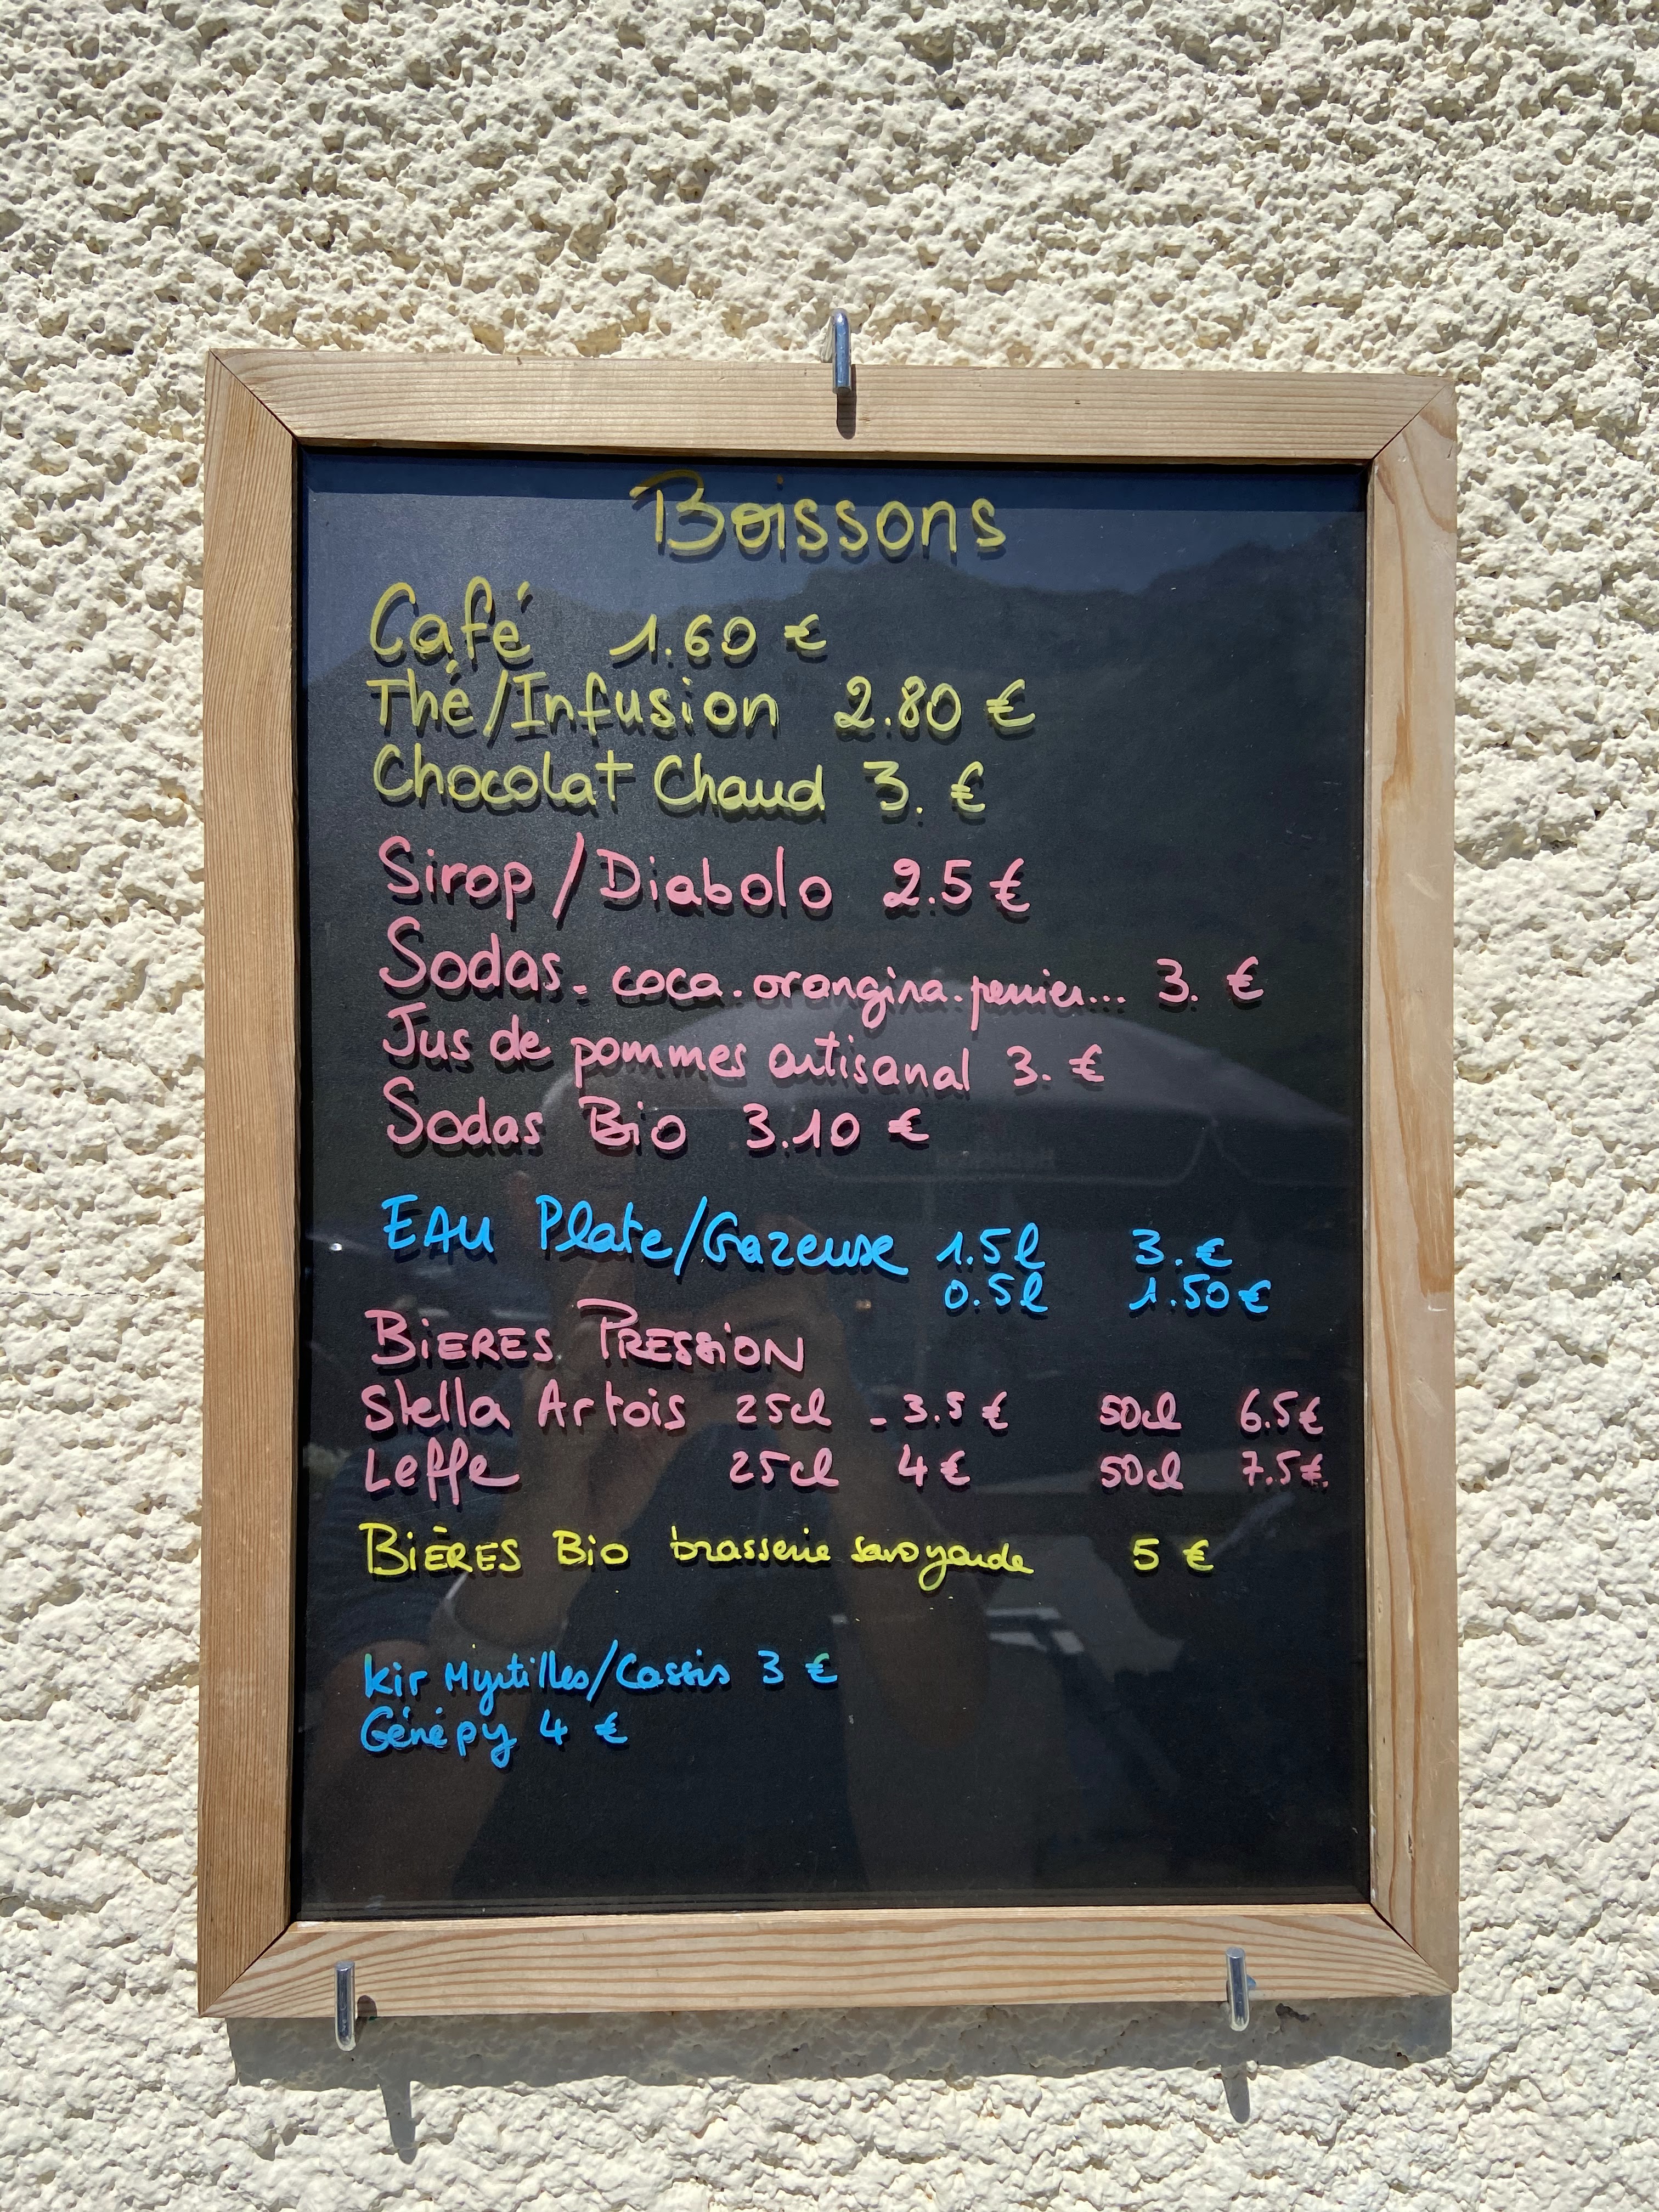 Boissons
Café 1.60 €
Thé/Infusion 2.80 €
Chocolat Chaud 3. €
Sirop/Diabolo 2.5 €
Sodas. coca.orangina.perrier... 3. €
Jus de pommes artisanal 3. €
Sodas Bio 3.10 €
EAU Plate/Gazeuse 1.5l 3.€
0.5l 1.50€
BIERES PRESSION
Stella Artois 25cl - 3.5 € 50cl 6.5€
Leffe 25cl 4€ 50cl 7.5€.
BIÈRES Bio brasserie savoyarde 5 €
kir Myrtilles/Cassis 3 €
Génépy 4 €